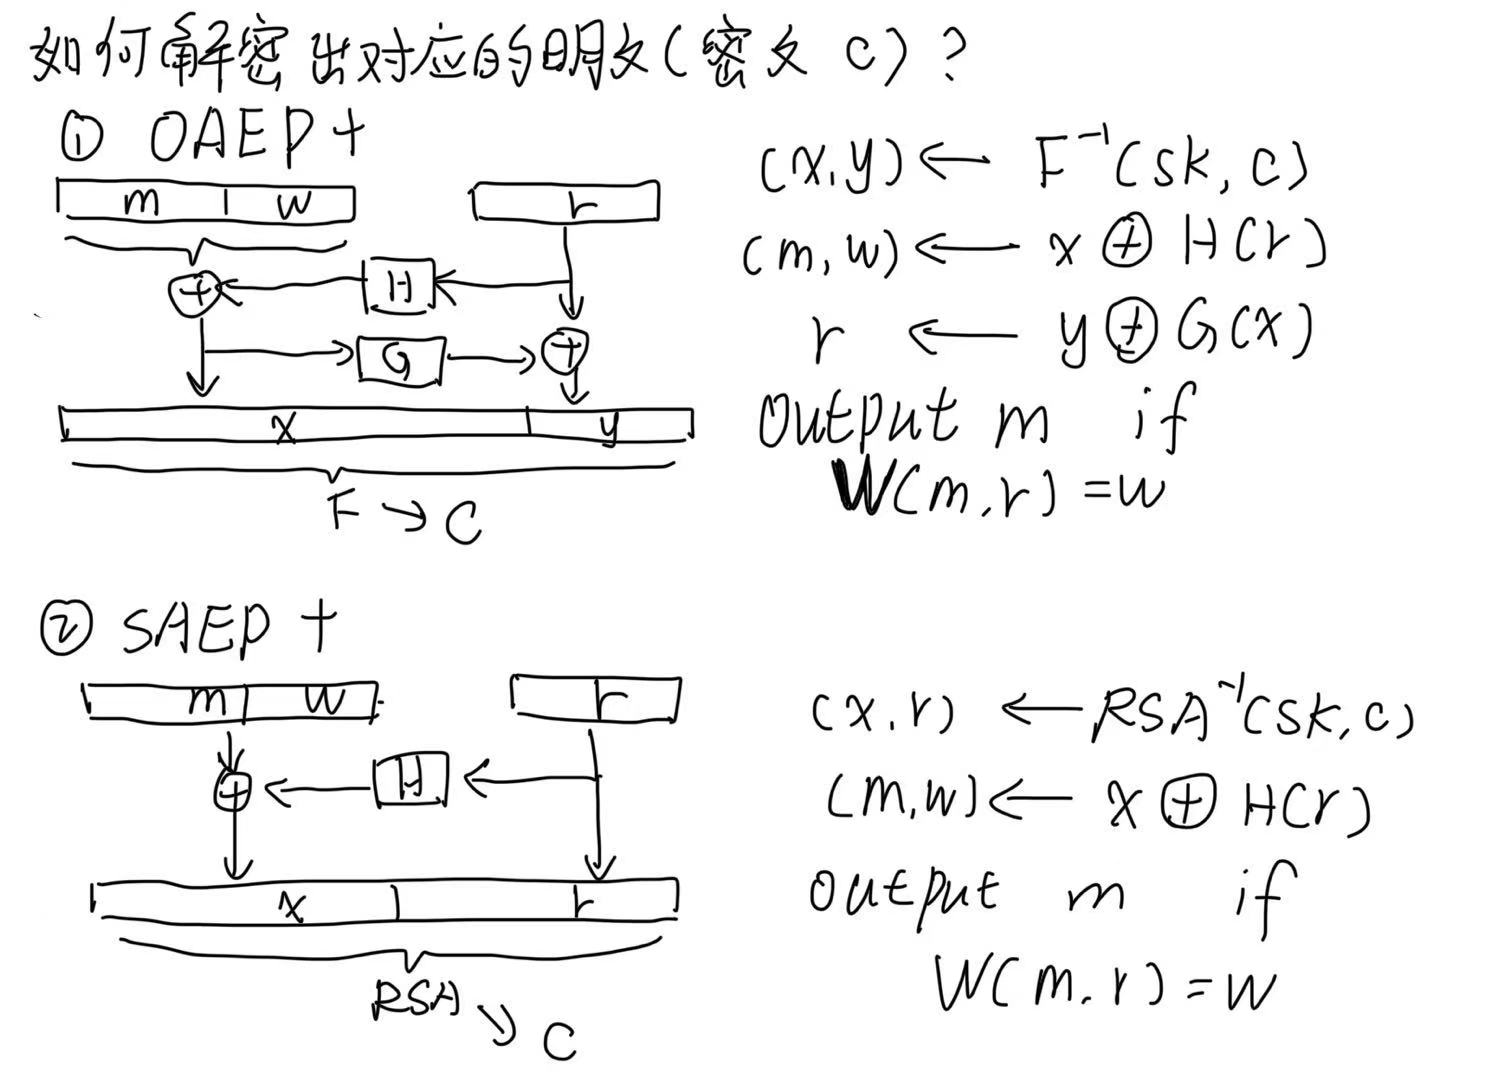 如何解密出对应的明文(密文 C)?
① OAEP+
m w r
H
G
x y
F → C
(x,y) ← F⁻¹(sk, c)
(m,w) ← x ⊕ H(r)
r ← y ⊕ G(x)
output m if
W(m,r) = w
② SAEP+
m w r
H
x r
RSA → C
(x,r) ← RSA⁻¹(sk, c)
(m,w) ← x ⊕ H(r)
output m if
W(m,r) = w